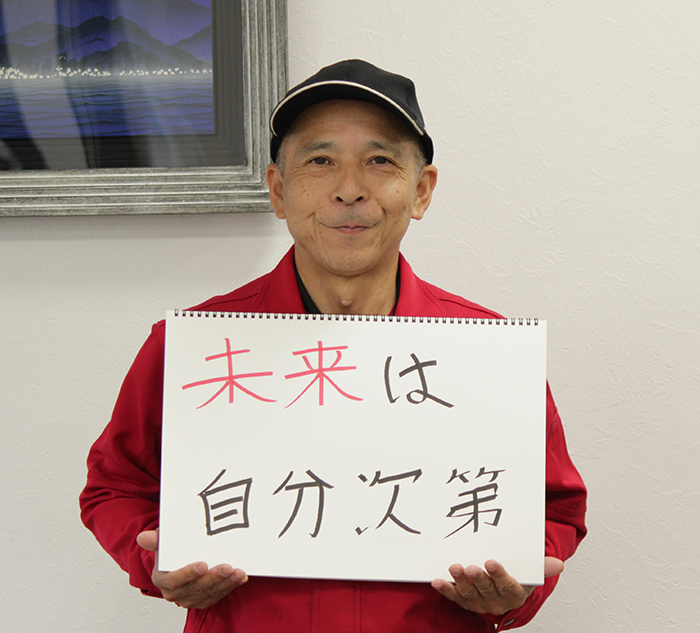 未来は
自分次第